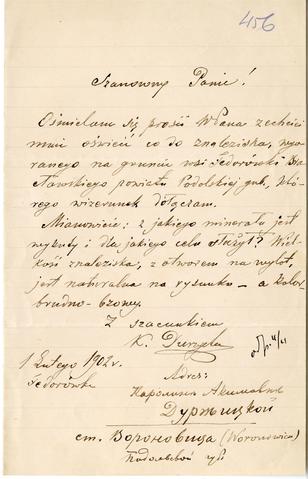 456
Szanowny Panie!
Ośmielam się prosić WPana zechcieć
mnie oświecić co do znaleziska, wyo-
ranego na gruncie wsi Fedorówki Bra-
cławskiego powiatu Podolskiej gub, któ-
rego wizerunek dołączam.
Mianowicie: z jakiego minerału jest
wykuty i dla jakiego celu służył? Wiel-
kość znaleziska, z otworem na wylot,
jest naturalna na rysunku – a kolor
brudno-bzowy.
Z szacunkiem
K.
1 Lutego 1902 r.
Fedorówka
Adres:
Каролинѣ Акимовнѣ
ст. Вороновица (Woronowica)
Подольской губ